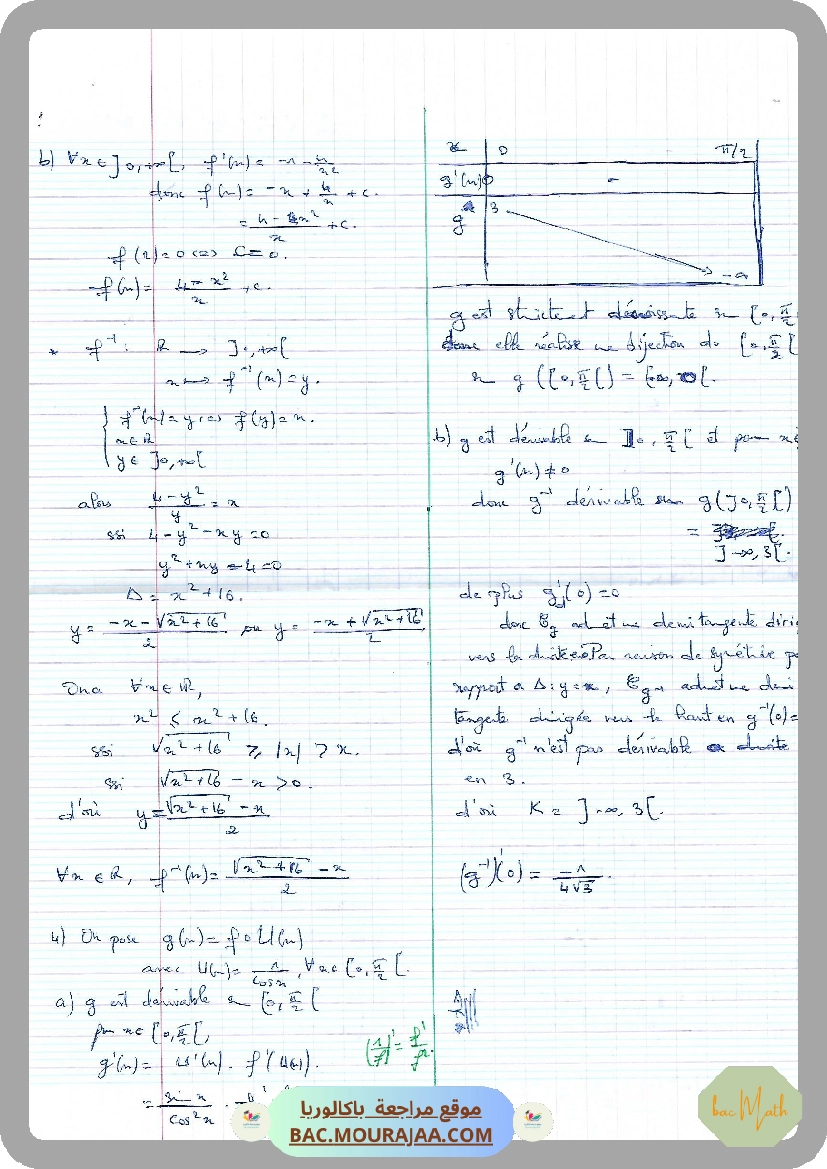 b) ∀x ∈ ]0,+∞[, f'(x) = -1 - 4/x²
donc f(x) = -x + 4/x + c.
= (4 - x²)/x + c.
f(2) = 0 <=> C = 0.
f(x) = (4 - x²)/x + c.
* f⁻¹ : ℝ → ]0,+∞[
x ↦ f⁻¹(x) = y.
f⁻¹(x) = y <=> f(y) = x.
x ∈ ℝ
y ∈ ]0,+∞[
alors (4 - y²)/y = x
ssi 4 - y² - xy = 0
y² + xy - 4 = 0
Δ = x² + 16.
y = (-x - √(x² + 16))/2 ou y = (-x + √(x² + 16))/2
On a ∀x ∈ ℝ,
x² ≤ x² + 16.
ssi √(x² + 16) ≥ |x| ≥ x.
ssi √(x² + 16) - x > 0.
d'où y = (√(x² + 16) - x)/2
∀x ∈ ℝ, f⁻¹(x) = (√(x² + 16) - x)/2
4) On pose g(x) = f∘U(x)
avec U(x) = 1/cos x, ∀x ∈ [0, π/2[.
a) g est dérivable sur [0, π/2[
pour x ∈ [0, π/2[,
g'(x) = U'(x) . f'(U(x)).
(1/f)' = f'/f².
= sin x/cos² x .
x 0 π/2
g'(x) 0 -
g 3 -∞
g est strictemt décroissante sur [0, π/2
donc elle réalise une bijection de [0, π/2[
sur g([0, π/2[) =
b) g est dérivable sur ]0, π/2[ et pour x ∈
g'(x) ≠ 0
donc g⁻¹ dérivable sur g(]0, π/2[)
= ]-∞, 3[.
de plus g'd(0) = 0
donc 𝒞g admet une demi tangente diri
vers la droite Par raison de symétrie p
rapport a Δ : y = x, 𝒞g⁻¹ admet une demi
tangente dirigée vers le haut en g⁻¹(0) =
d'où g⁻¹ n'est pas dérivable
en 3.
d'où K = ]-∞, 3[.
(g⁻¹)'(0) = -1/(4√3).
موقع مراجعة باكالوريا
BAC.MOURAJAA.COM
bac Math